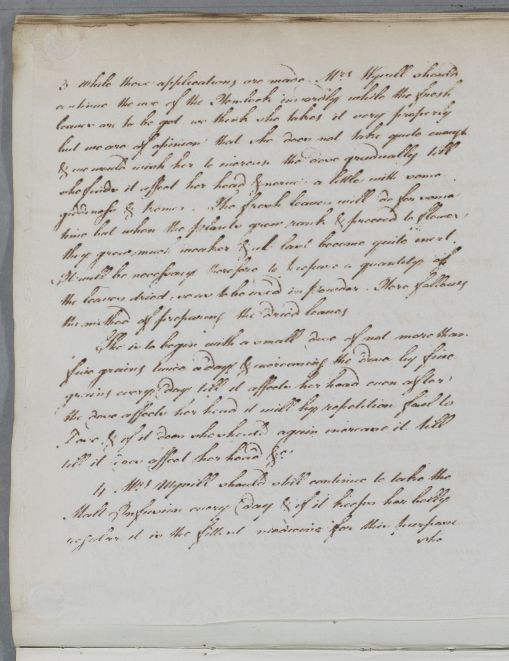 3 While these applications are made Mrs Wyvill should
continue the use of the Hemlock inwardly while the fresh
leaves are to be got we think she takes it very properly
but we are of opinion that she does not take quite enough
& we would wish her to increase the dose gradually till
she finds it affect her head & nerves a little with some
giddiness & tremor. The fresh leaves will do for some
time but when the plants grow rank & proceed to flower,
they grow much weaker & at last become quite inert.
It will be necessary therefore to prepare a quantity of
the leaves dried so as to be used in powder. Here follows
the method of preparing the dried leaves
She is to begin with a small dose of not more than
five grains twice a day & increasing the dose by five
grains every day till it affects her head even after
the dose affects her head it will by repetition fail to
do so, & if it does she should again increase it till
till it does affect her head &c:
4 Mrs Wyvill should still continue to take the
Malt Infusion every day & if it keeps her belly
regular it is the fittest medicine for this purpose
she